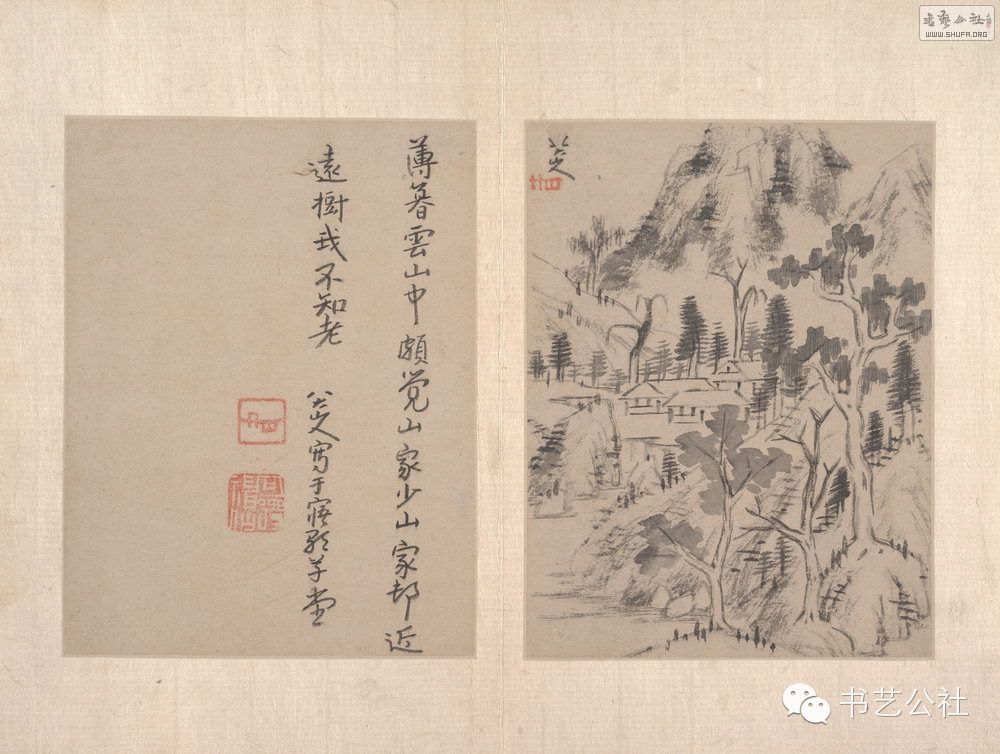 薄暮雲山中頗覺山家少山家邨近
遠樹我不知老
八大山人寫于寤歌草堂
八大山人
書藝公社
WWW.SHUFA.ORG
书艺公社